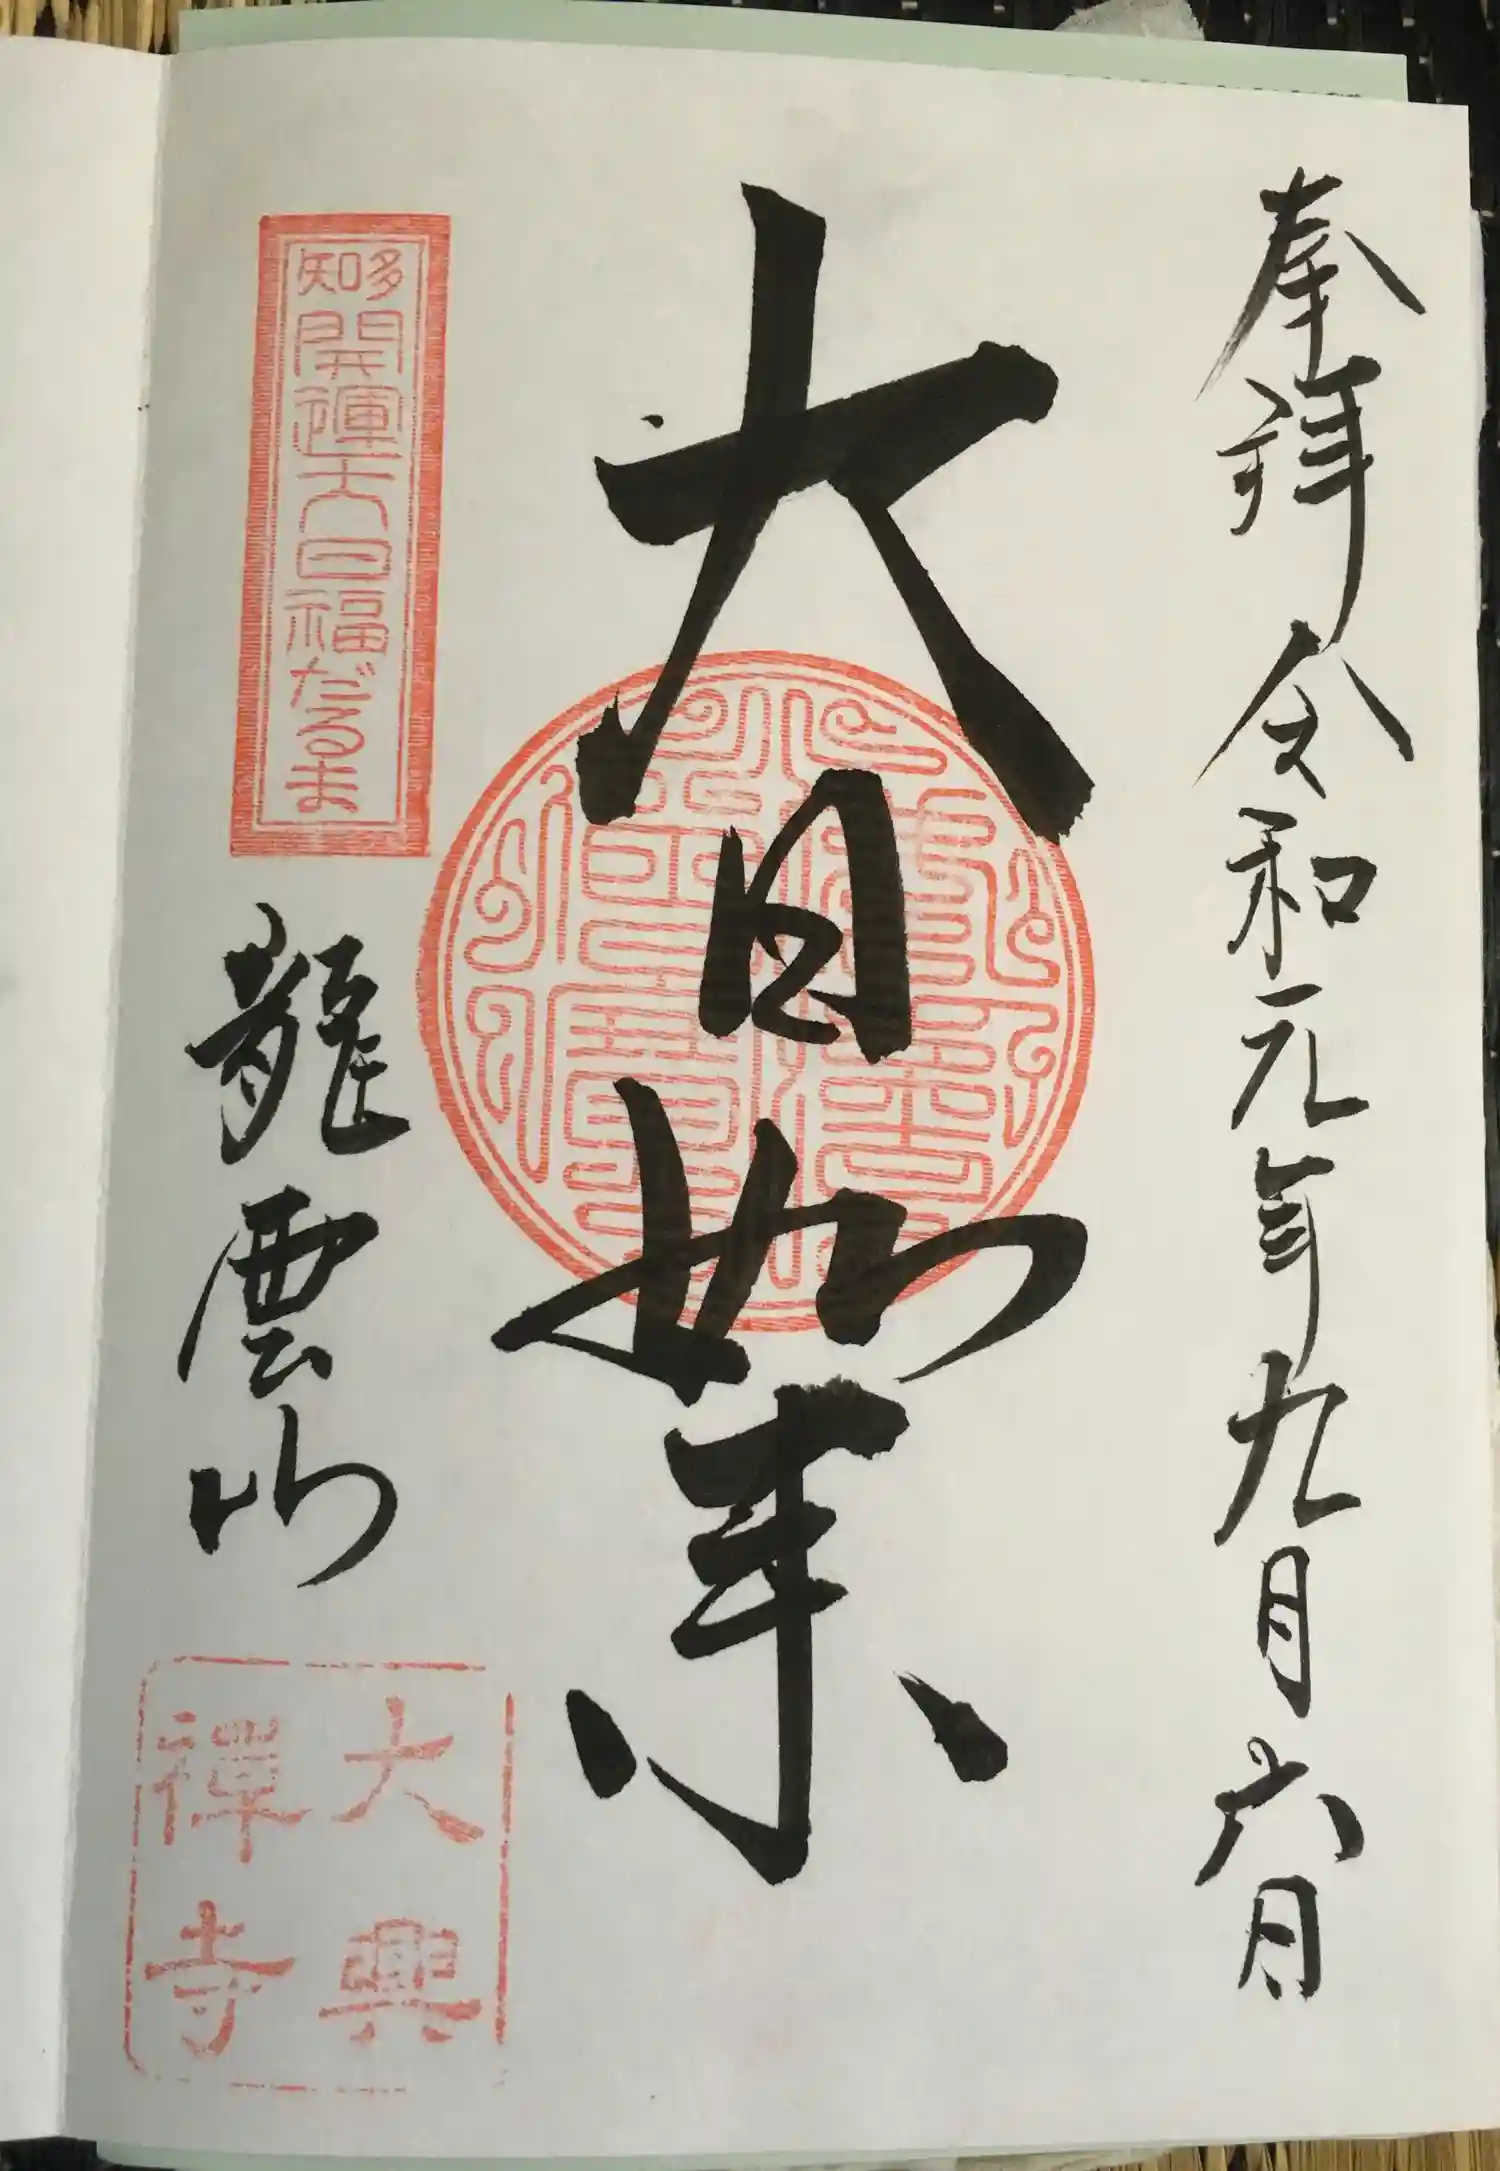 奉拝 令和元年九月六日
大日如来
多知
開運大日福だるま
龍雲山
大興
禅寺